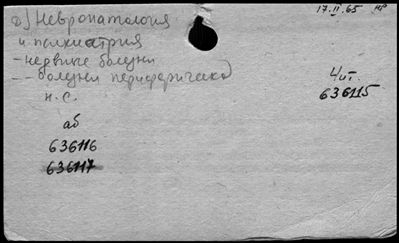 2) Невропатология 17.II.65
и психиатрия
- нервные болезни
-- болезни периферическ.
н.с.
Чит.
636115
аб
636116
636117